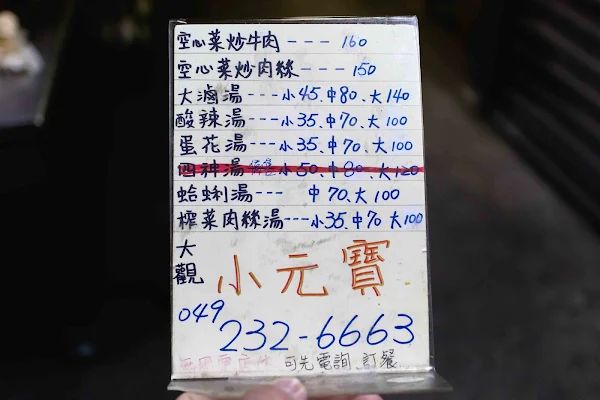 空心菜炒牛肉 --- 160
空心菜炒肉絲 --- 150
大滷湯---小45、中80、大140
酸辣湯---小35、中70、大100
蛋花湯---小35、中70、大100
四神湯 小50、中80、大120
蛤蜊湯--- 中70、大100
榨菜肉絲湯---小35、中70 大100
大觀 小元寶
049
232-6663
可先電詢、訂餐